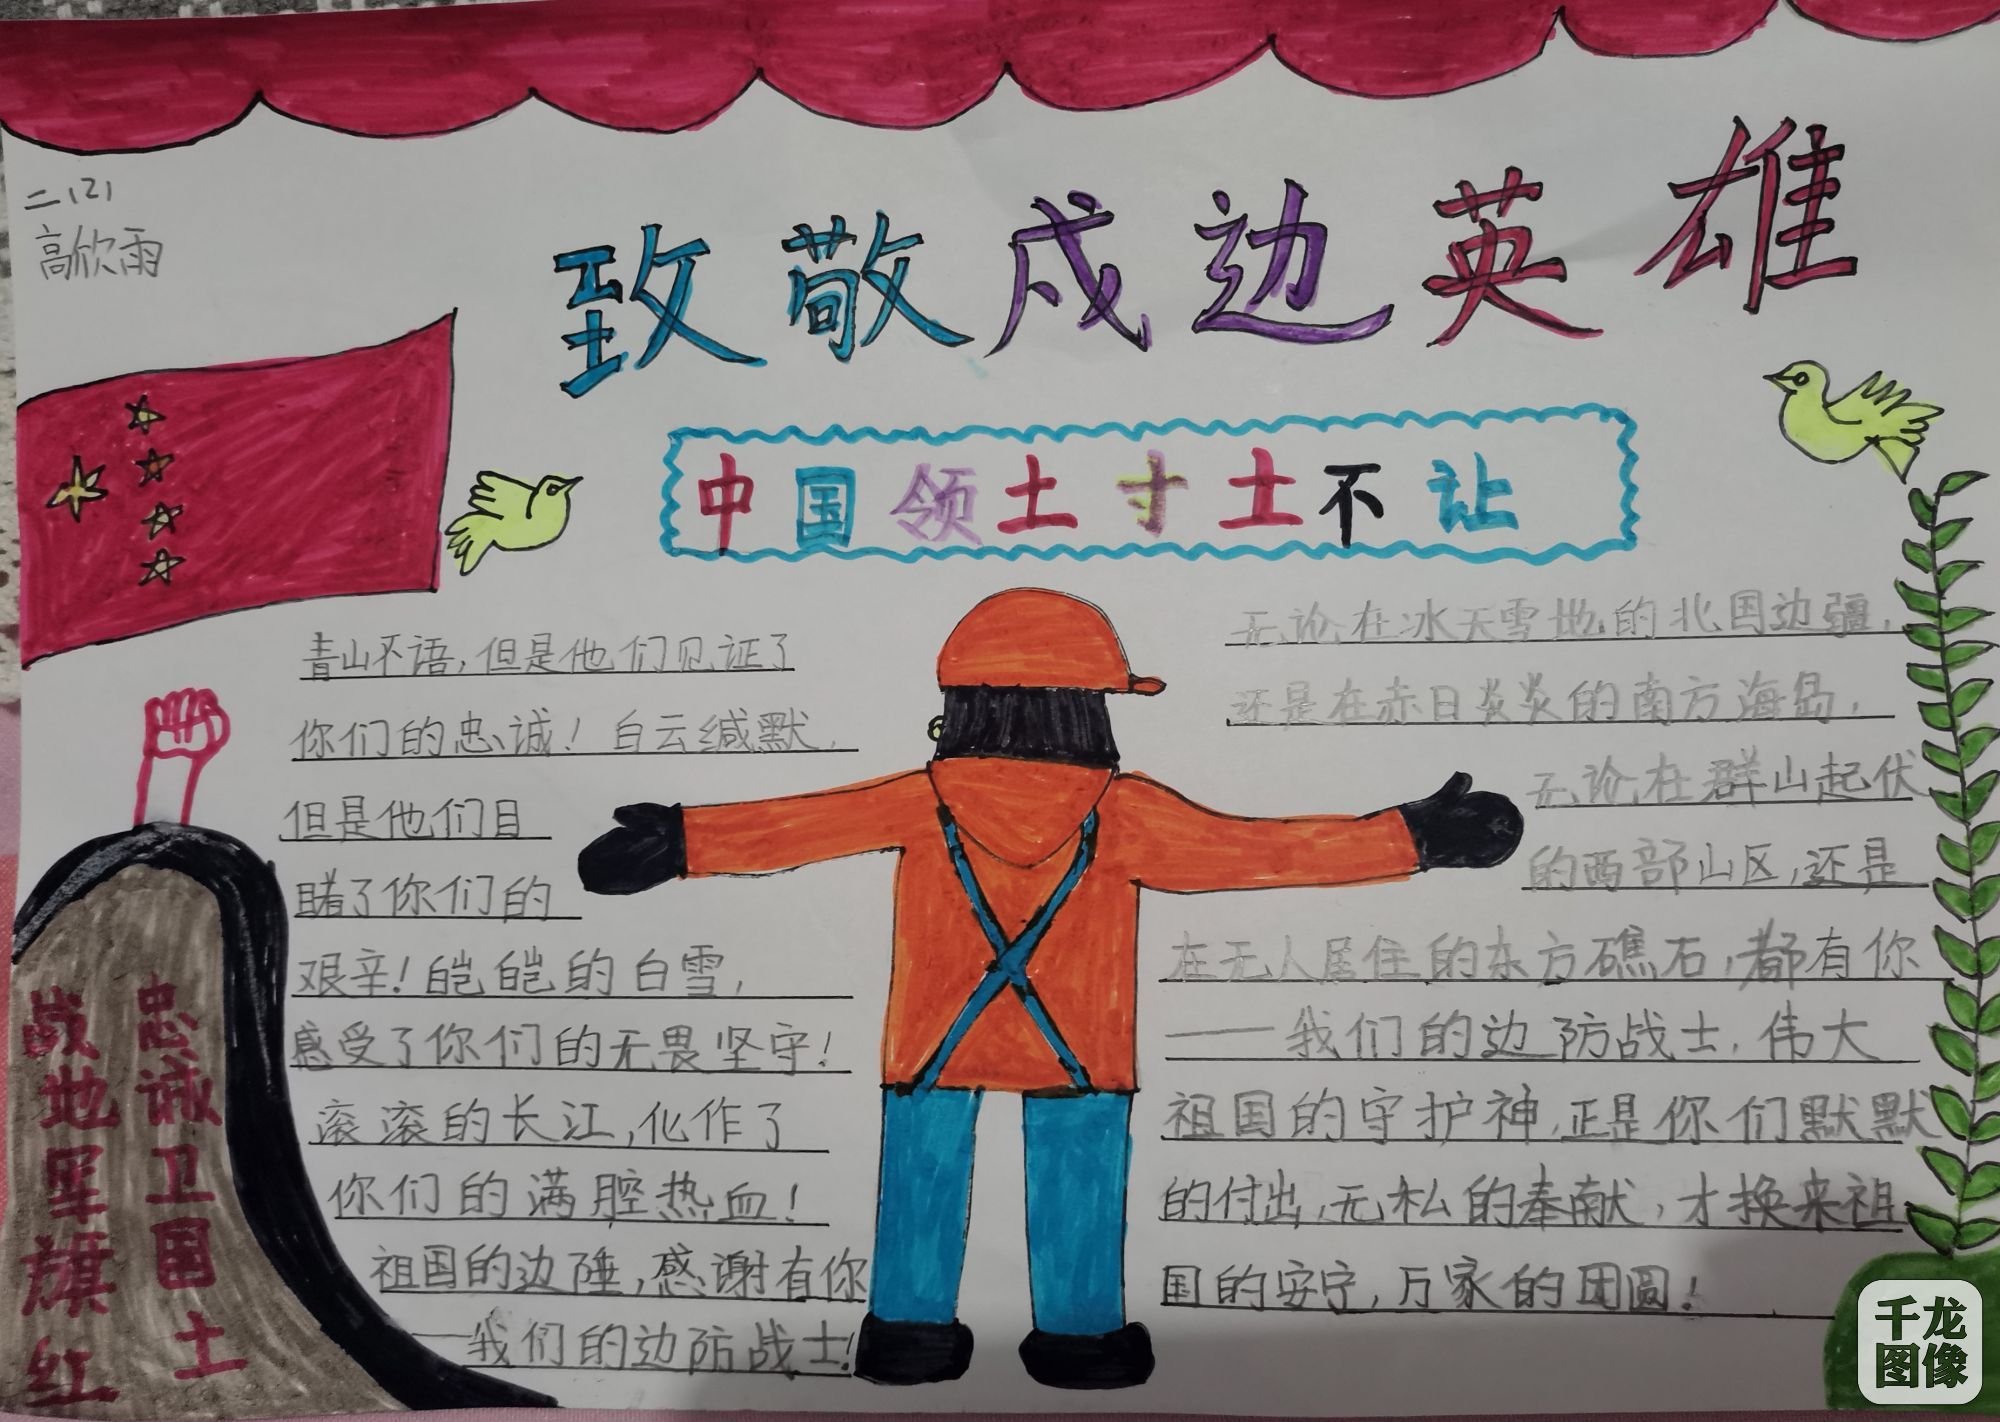 二（2）
高欣雨
致敬戍边英雄
中国领土寸土不让
青山不语，但是他们见证了
你们的忠诚！白云缄默，
但是他们目
睹了你们的
艰辛！皑皑的白雪，
感受了你们的无畏坚守！
滚滚的长江，化作了
你们的满腔热血！
祖国的边陲，感谢有你
——我们的边防战士！
无论在冰天雪地的北国边疆，
还是在赤日炎炎的南方海岛，
无论在群山起伏
的西部山区，还是
在无人居住的东方礁石，都有你
——我们的边防战士，伟大
祖国的守护神，正是你们默默
的付出，无私的奉献，才换来祖
国的安宁，万家的团圆！
忠诚卫国土
战地军旗红
千龙
图像